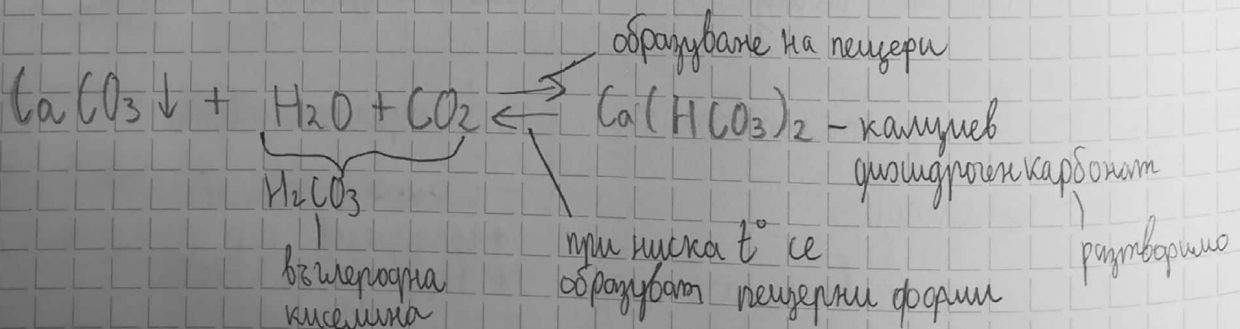 образуване на пещери
CaCO3↓ + H2O + CO2 ⇄ Ca(HCO3)2 – калциев
дихидрогенкарбонат
H2CO3
въглеродна
киселина
при ниска t° се
образуват пещерни форми
разтворимо